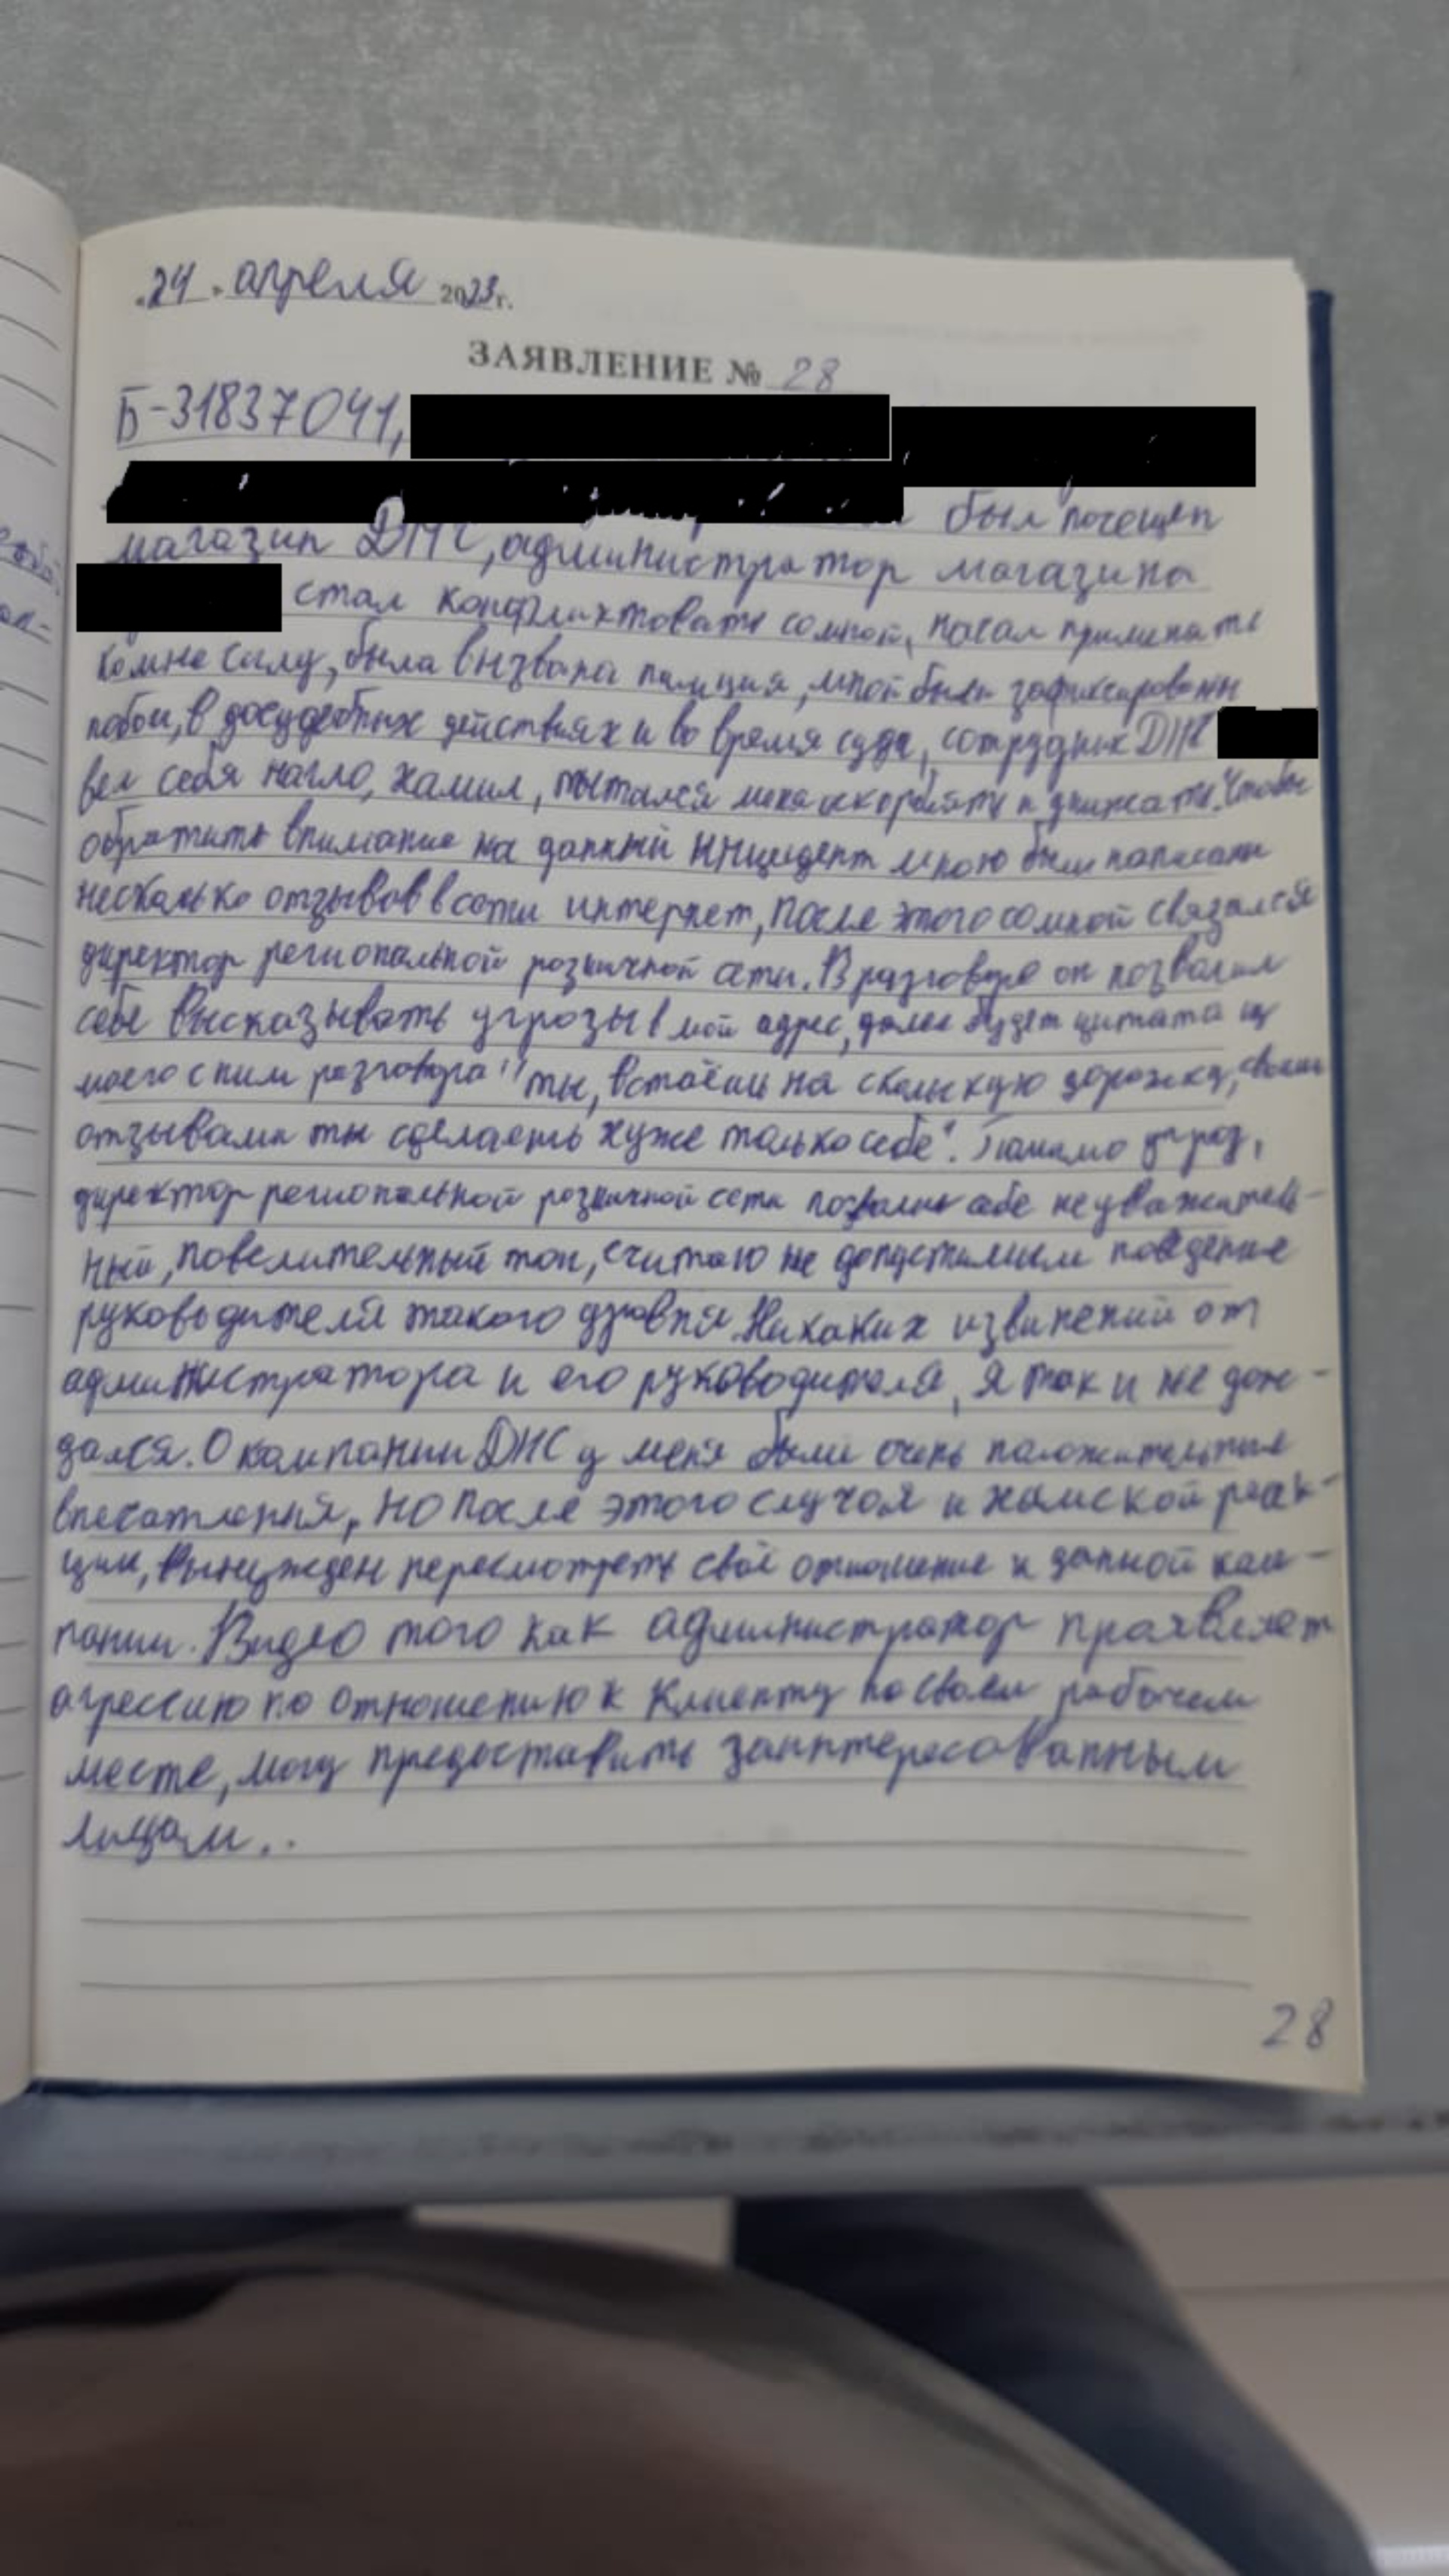 «24» апреля 2023 г.
ЗАЯВЛЕНИЕ № 28
Б-31837041,
был посещен
магазин ДНС, администратор магазина
стал конфликтовать со мной, начал применять
ко мне силу, была вызвана полиция, мной были зафиксированы
побои, в досудебных действиях и во время суда, сотрудник ДНС
вел себя нагло, хамил, пытался меня оскорблять и унижать. Чтобы
обратить внимание на данный инцидент мною были написаны
несколько отзывов в сети интернет, после этого со мной связался
директор региональной розничной сети. В разговоре он позволил
себе высказывать угрозы в мой адрес, далее будет цитата из
моего с ним разговора "ты, встаёшь на скользкую дорожку, своими
отзывами ты сделаешь хуже только себе". Помимо угроз,
директор региональной розничной сети позволил себе неуважитель-
ный, повелительный тон, считаю не допустимым поведение
руководителя такого уровня. Никаких извинений от
администратора и его руководителя, я так и не дож-
дался. О компании ДНС у меня были очень положительные
впечатления, но после этого случая и хамской реак-
ции, вынужден пересмотреть своё отношение к данной ком-
пании. Видео того как администратор проявляет
агрессию по отношению к клиенту на своем рабочем
месте, могу предоставить заинтересованным
лицам..
28